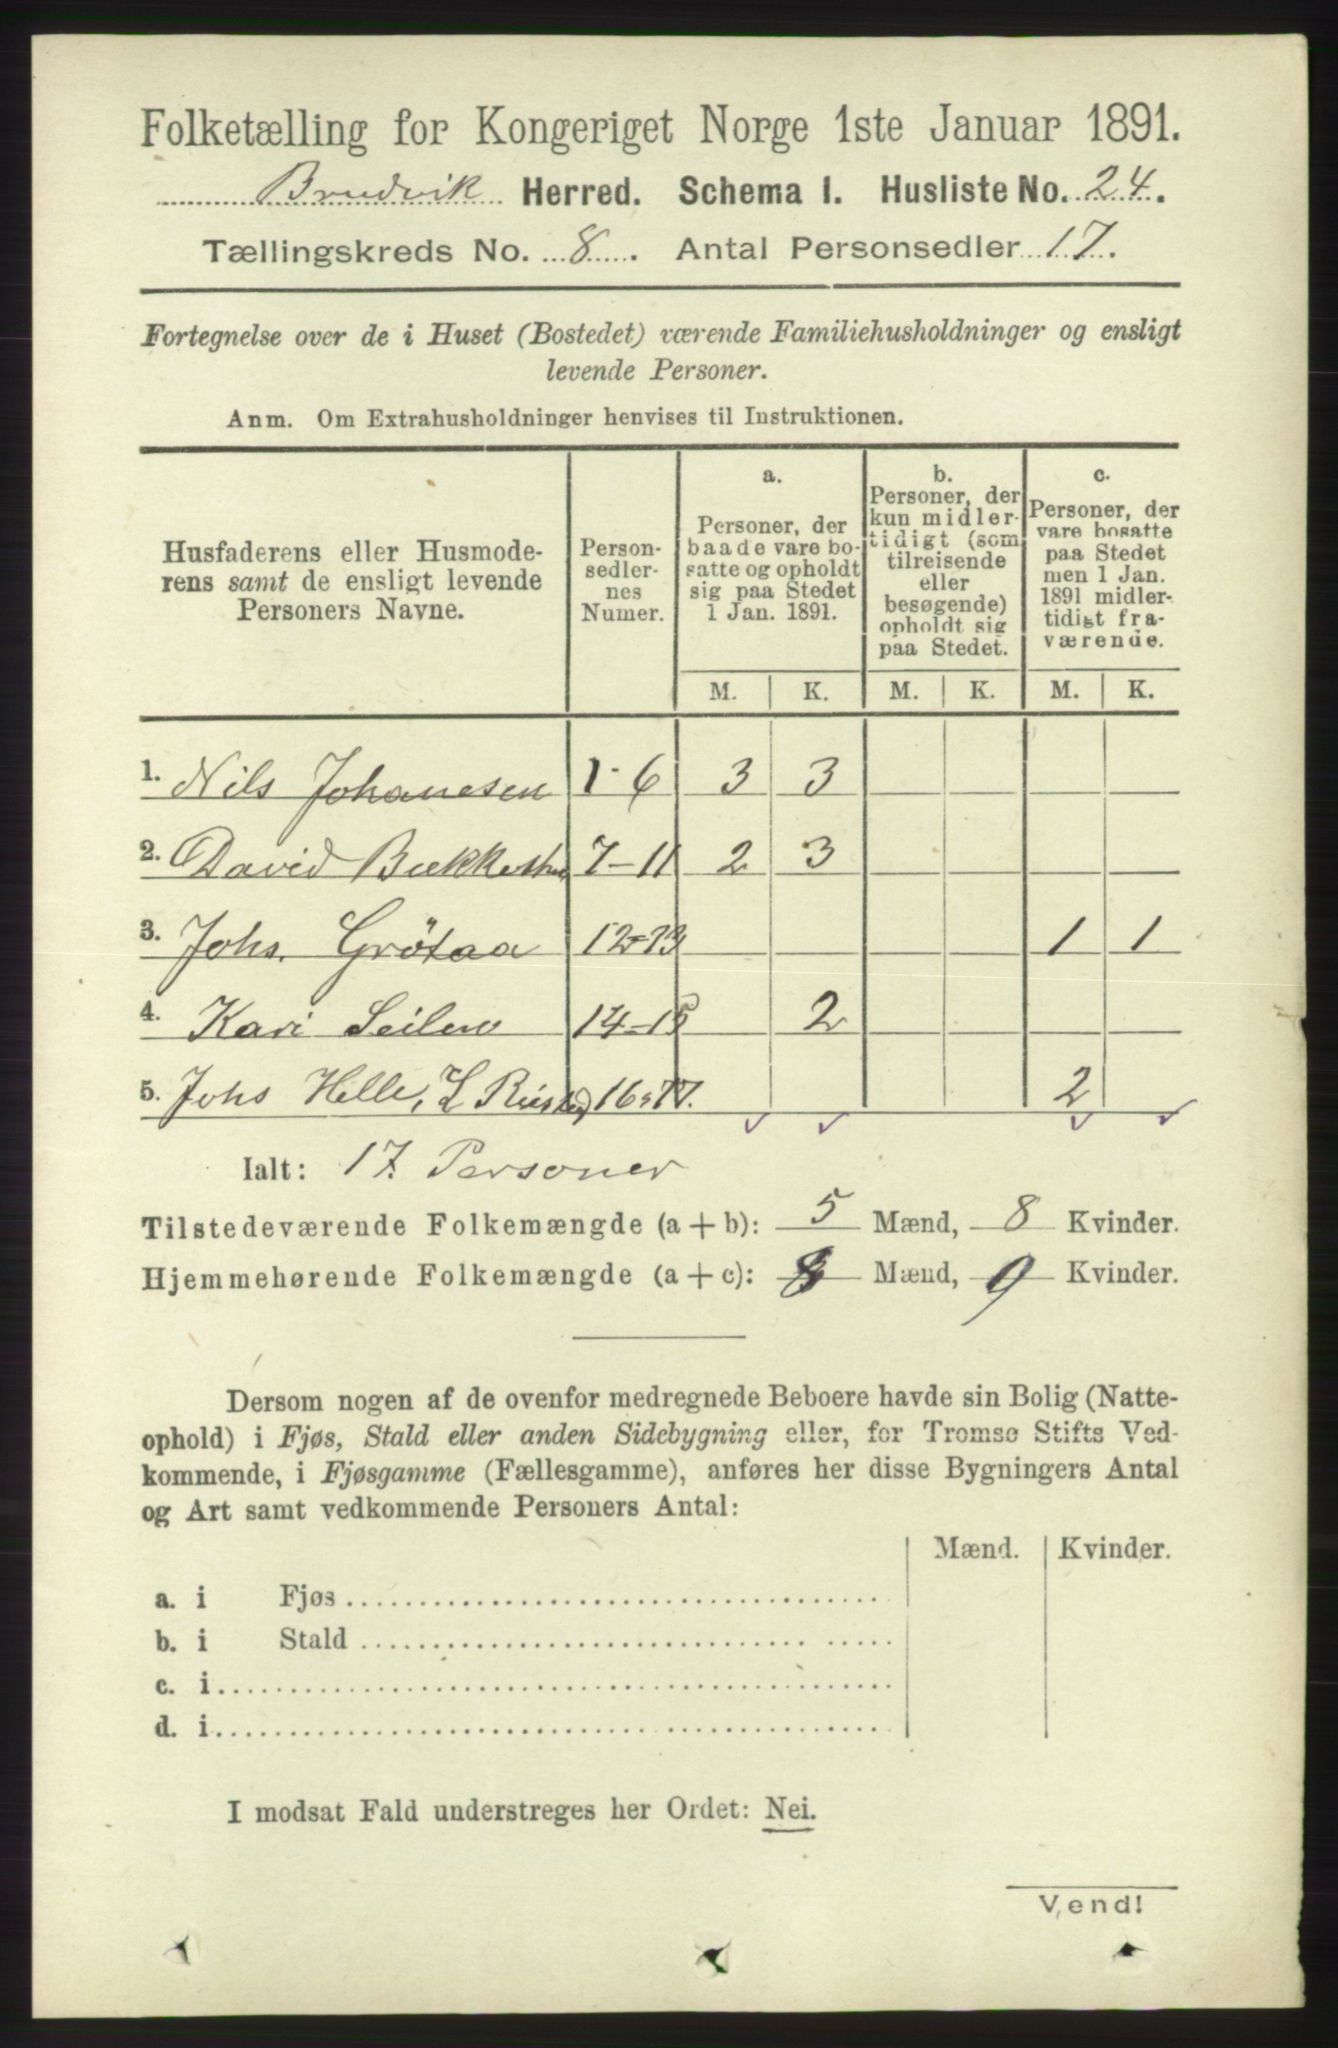 Folketælling for Kongeriget Norge 1ste Januar 1891.
Brudvik Herred. Schema I. Husliste No. 24.
Tællingskreds No. 8. Antal Personsedler 17.
Fortegnelse over de i Huset (Bostedet) værende Familiehusholdninger og ensligt
levende Personer.
Anm. Om Extrahusholdninger henvises til Instruktionen.
Husfaderens eller Husmode-
rens samt de ensligt levende
Personers Navne.
Person-
sedler-
nes
Numer.
a.
Personer, der
baade vare bo-
satte og opholdt
sig paa Stedet
1 Jan. 1891.
b.
Personer, der
kun midler-
tidigt (som
tilreisende
eller
besøgende)
opholdt sig
paa Stedet.
c.
Personer, der
vare bosatte
paa Stedet
men 1 Jan.
1891 midler-
tidigt fra-
værende.
M. K. M. K. M. K.
1. Nils Johanesen 1-6 3 3
2. David 7-11 2 3
3. Johs. Grötaa 12-13 1 1
4. Kari Seilen 14-15 2
5. Johs Helle, L 16-17. 2
Ialt: 17. Personer
Tilstedeværende Folkemængde (a + b): 5 Mænd, 8 Kvinder.
Hjemmehørende Folkemængde (a + c): 8 Mænd, 9 Kvinder.
Dersom nogen af de ovenfor medregnede Beboere havde sin Bolig (Natte-
ophold) i Fjøs, Stald eller anden Sidebygning eller, for Tromsø Stifts Ved-
kommende, i Fjøsgamme (Fællesgamme), anføres her disse Bygningers Antal
og Art samt vedkommende Personers Antal:
Mænd. Kvinder.
a. i Fjøs
b. i Stald
c. i
d. i
I modsat Fald understreges her Ordet: Nei.
Vend!